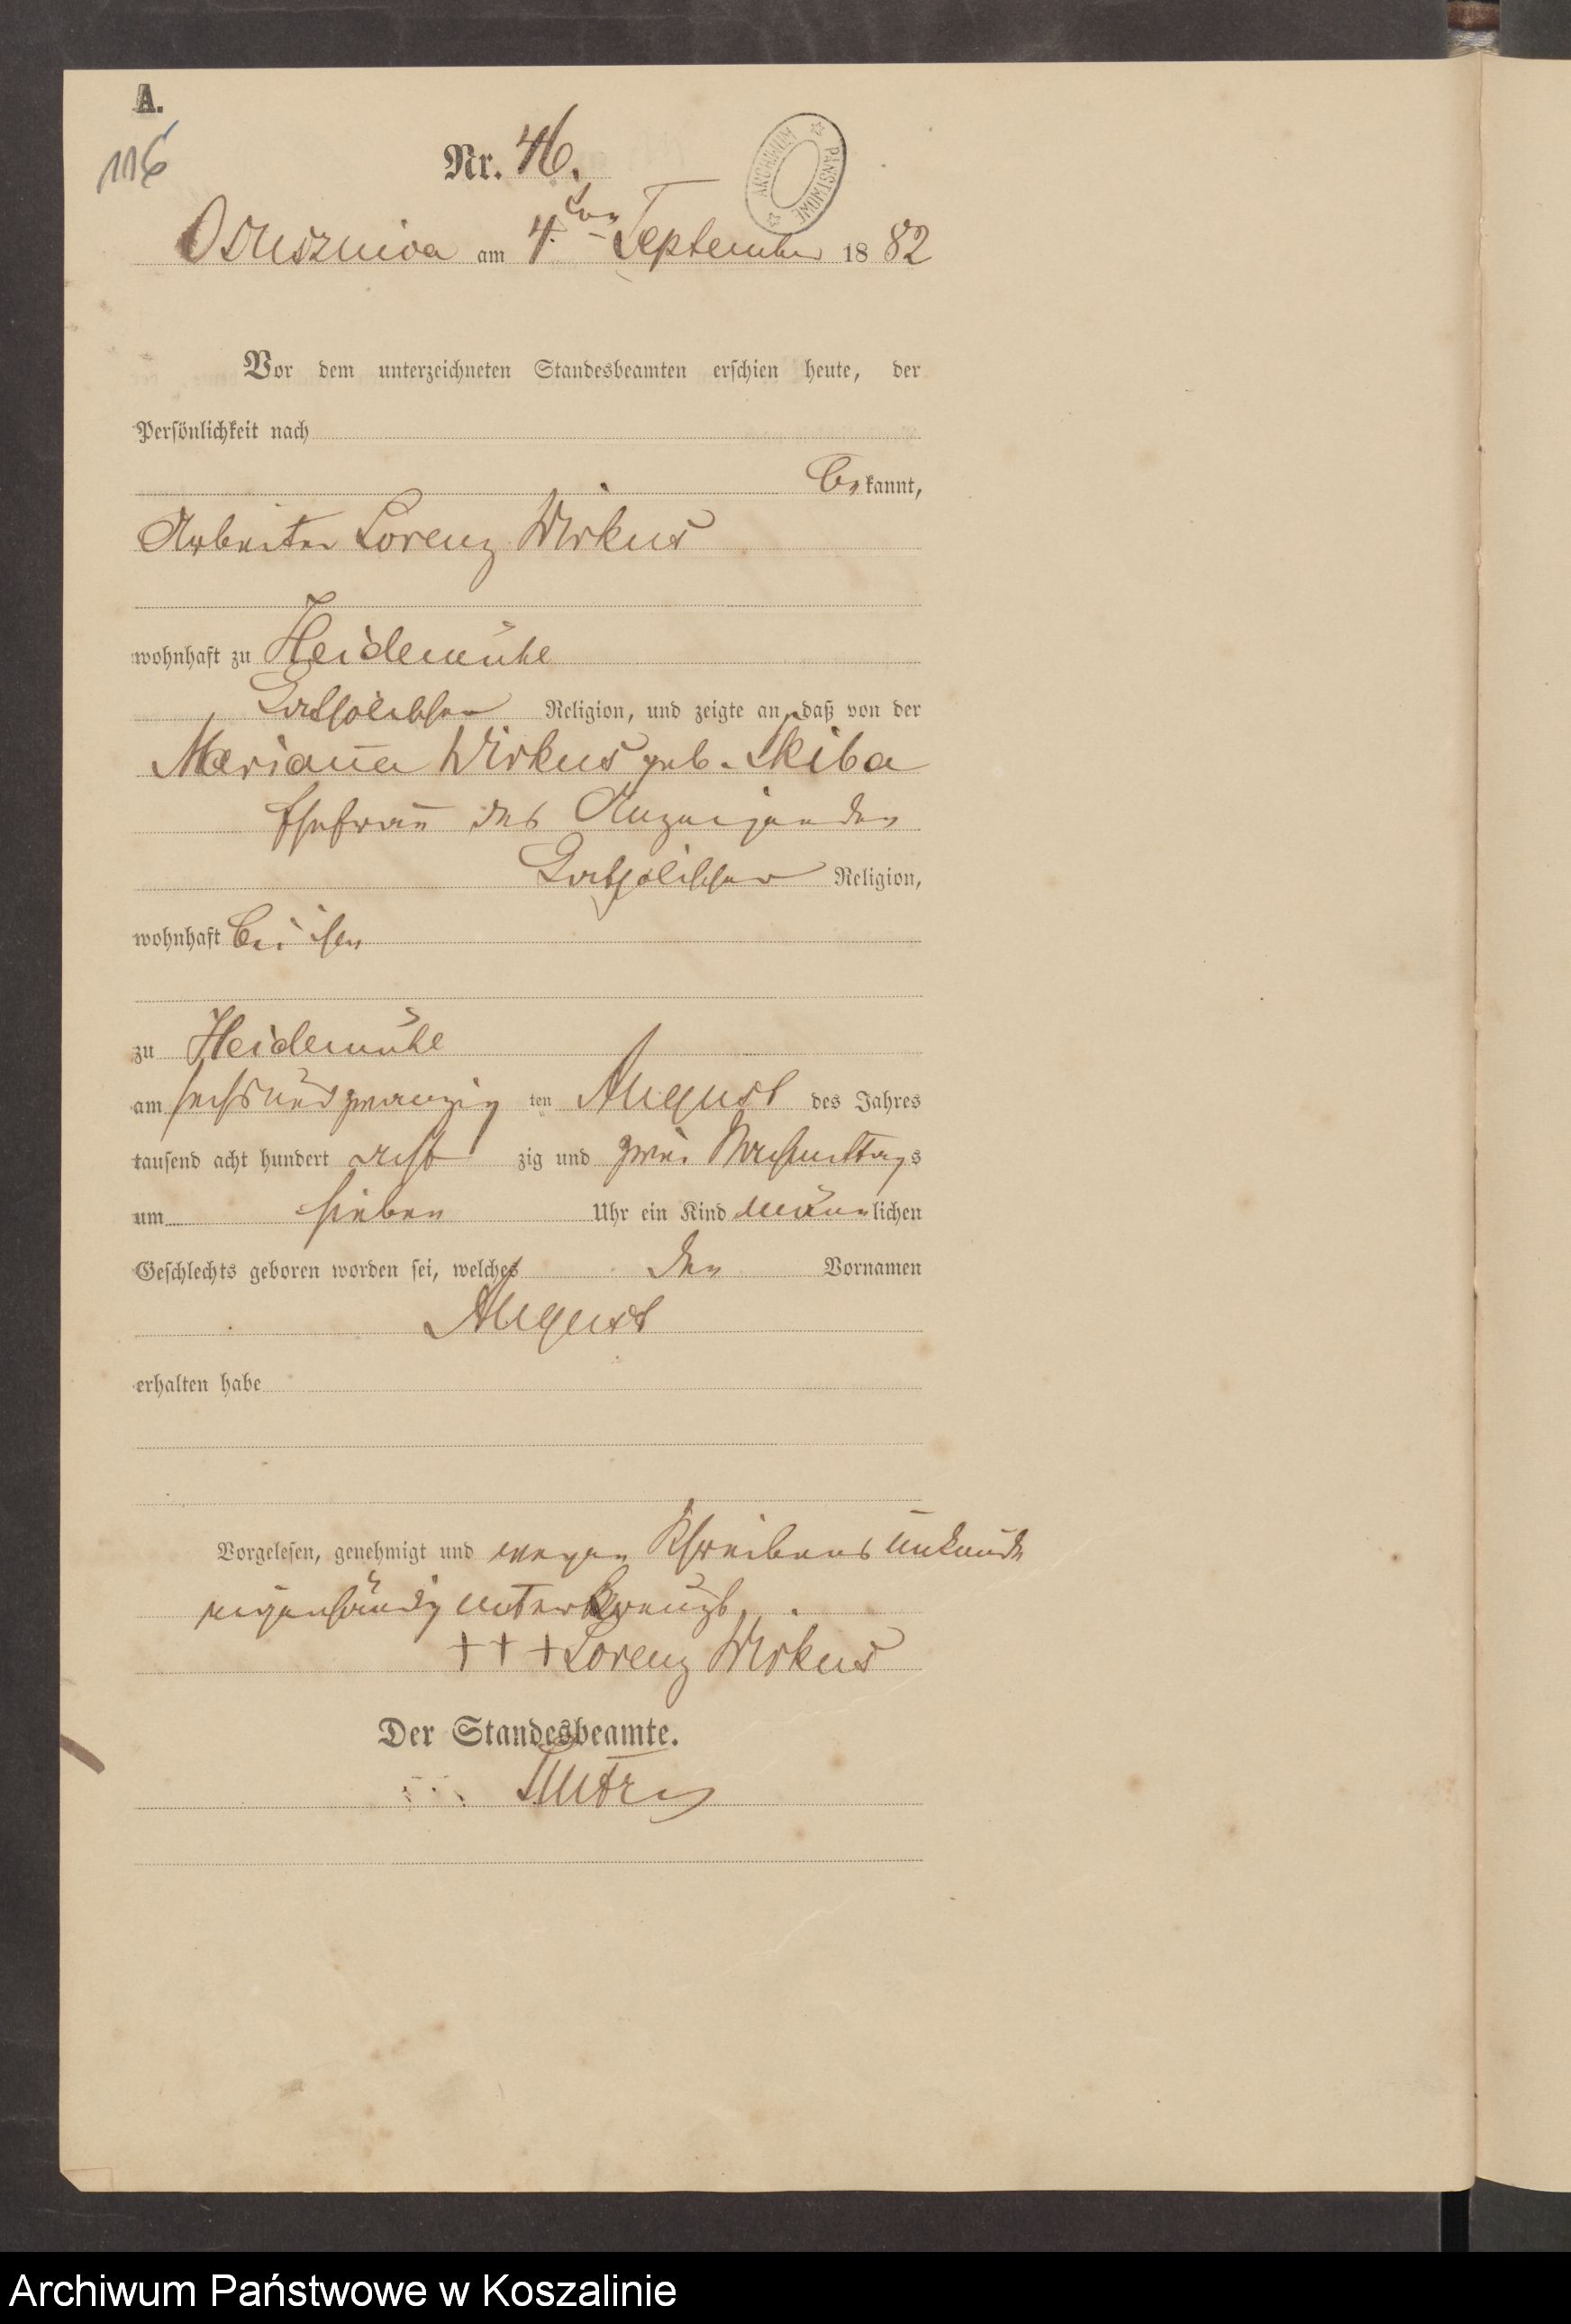 A.
116
Nr. 46.
ARCHIWUM PAŃSTWOWE
Osusznica am 4ten September 1882
Vor dem unterzeichneten Standesbeamten erschien heute, der
Persönlichkeit nach
bekannt,
Arbeiter Lorenz Wirkus
wohnhaft zu Heidemühl
katholischer Religion, und zeigte an, daß von der
Marianna Wirkus geb. Skiba
Ehefrau des Anzeigenden
katholischer Religion,
wohnhaft bei ihm
zu Heidemühl
am sechsundzwanzig ten August des Jahres
tausend acht hundert acht zig und zwei Nachmittags
um sieben Uhr ein Kind männlichen
Geschlechts geboren worden sei, welches den Vornamen
August
erhalten habe
Vorgelesen, genehmigt und wegen Schreibens Unkunde
eigenhändig unterkreuzt.
+ + + Lorenz Wirkus
Der Standesbeamte.
Archiwum Państwowe w Koszalinie